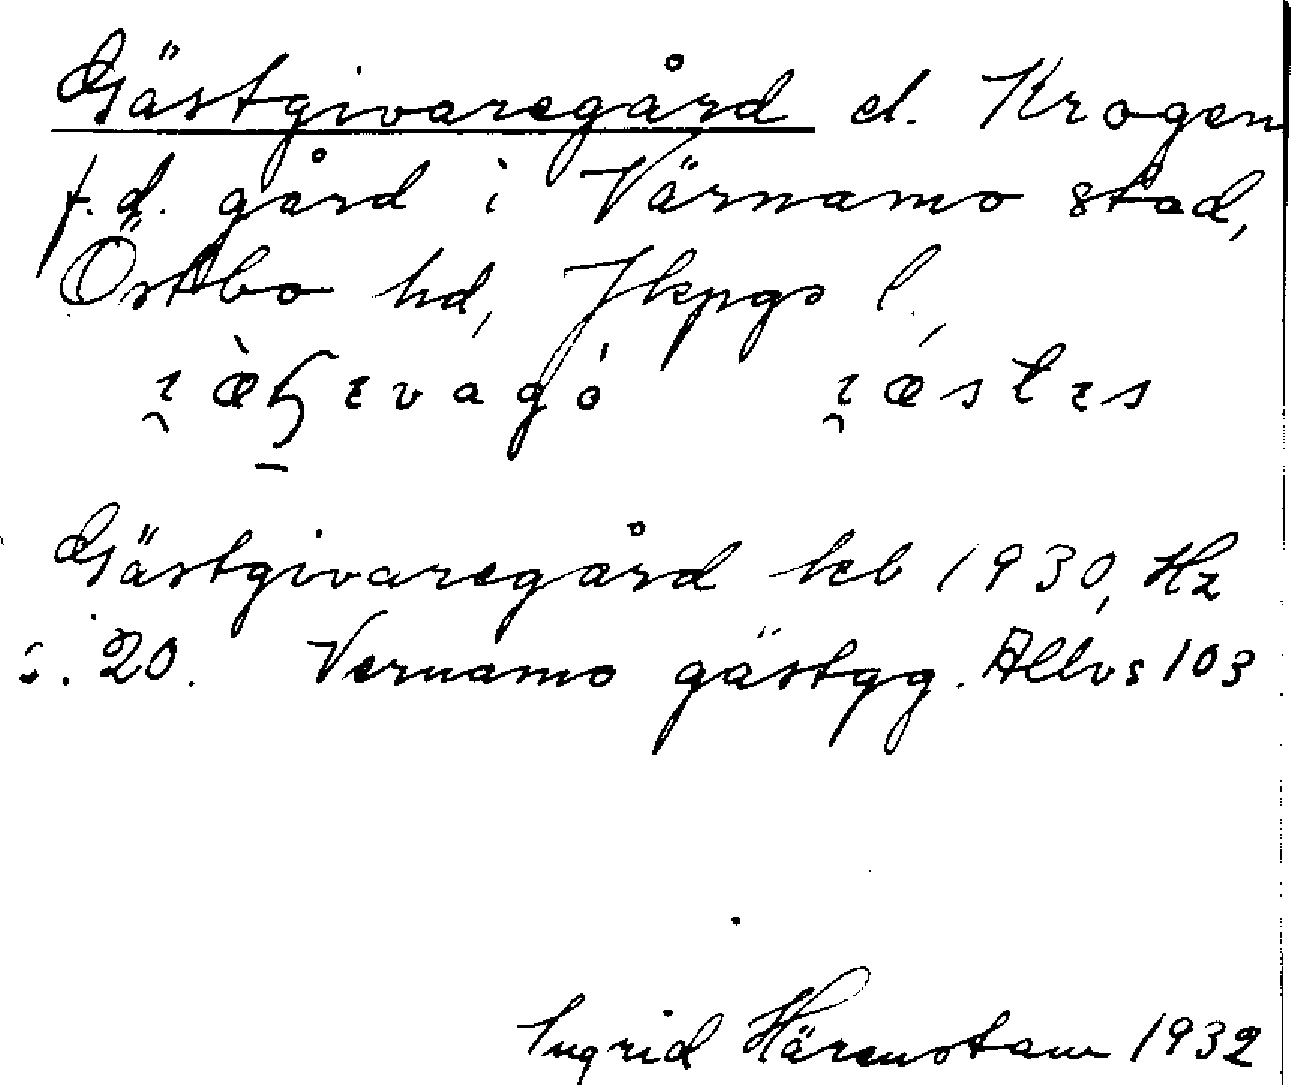 Gästgivaregård el. Krogen
f.d. gård i Värnamo stad,
Östbo hd, Jkpgs l.,
Gästgivaregård kb 1930, Hz
s. 20. Vernamo gästgg. Allvs 103
Ingrid Härenstam 1932